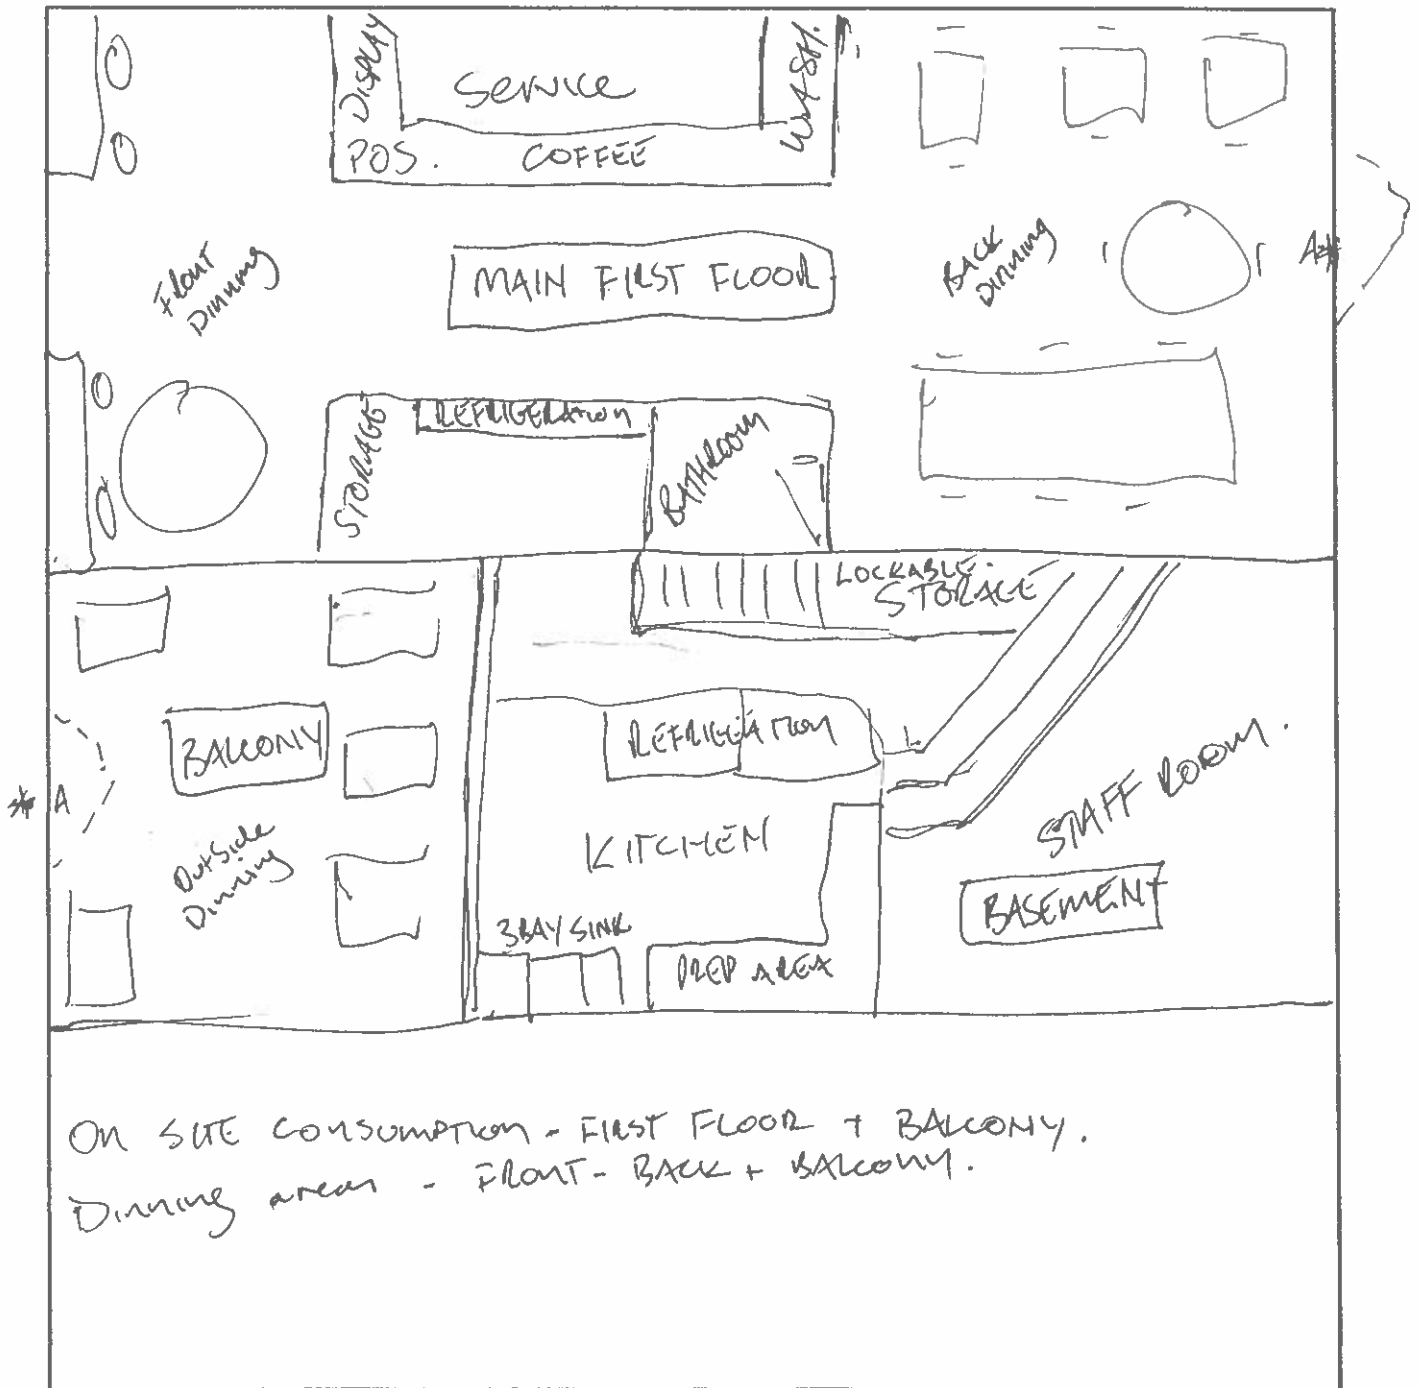 DISPLAY
Service
WASH.
POS.
COFFEE
FRONT
Dinning
MAIN FIRST FLOOR
BACK
DINNING
STORAGE
REFRIGERATION
BATHROOM
LOCKABLE.
STORAGE
BALCONY
* A
OutSide
Dinning
REFRIGERATION
KITCHEN
3BAY SINK
PREP AREA
STAFF ROOM.
BASEMENT
On SITE CONSUMPTION - FIRST FLOOR + BALCONY.
Dinning areas - FRONT - BACK + BALCONY.